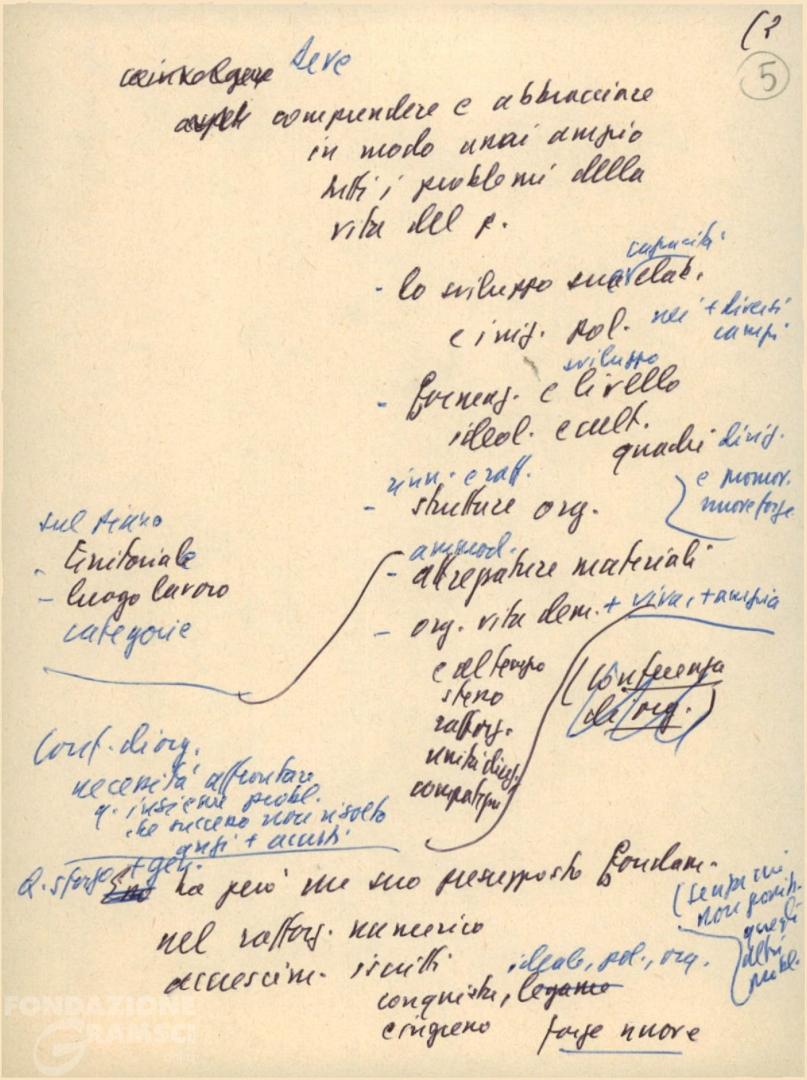 (2
5
coinvolgere deve
comprendere e abbracciare
in modo assai ampio
tutti i problemi della
vita del p.
- lo sviluppo sua capacità elab.
e iniz. pol. nei + diversi
campi
sviluppo
- formaz. e livello
ideol. e cult.
quadri dirig.
e promoz.
nuove forze
rinn. e raff.
- strutture org.
sul piano
- territoriale
- luogo lavoro
categorie
ammod.
- attrezzature materiali
- org. vita dem. + viva, + ampia
e al tempo
stesso
rafforz.
unità direz.
(conferenza
di org.)
Conf. di org.
necessità affrontare
q. insieme probl.
che successo non risolto
anzi + acuiti
Q. sforzo + gen.
ha però un suo presupposto fondam.
nel rafforz. numerico
accrescim. iscritti
ideale, pol., org.
conquista, legame
e ingresso forze nuove
(senza cui
non
quegli
altri
probl.
FONDAZIONE
GRAMSCI